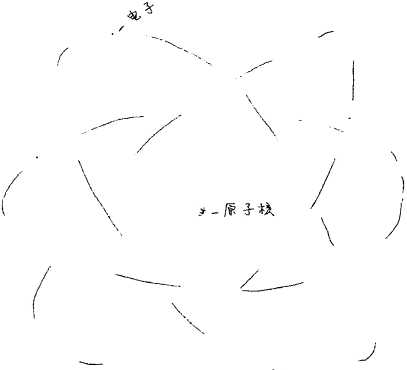 电子
原子核